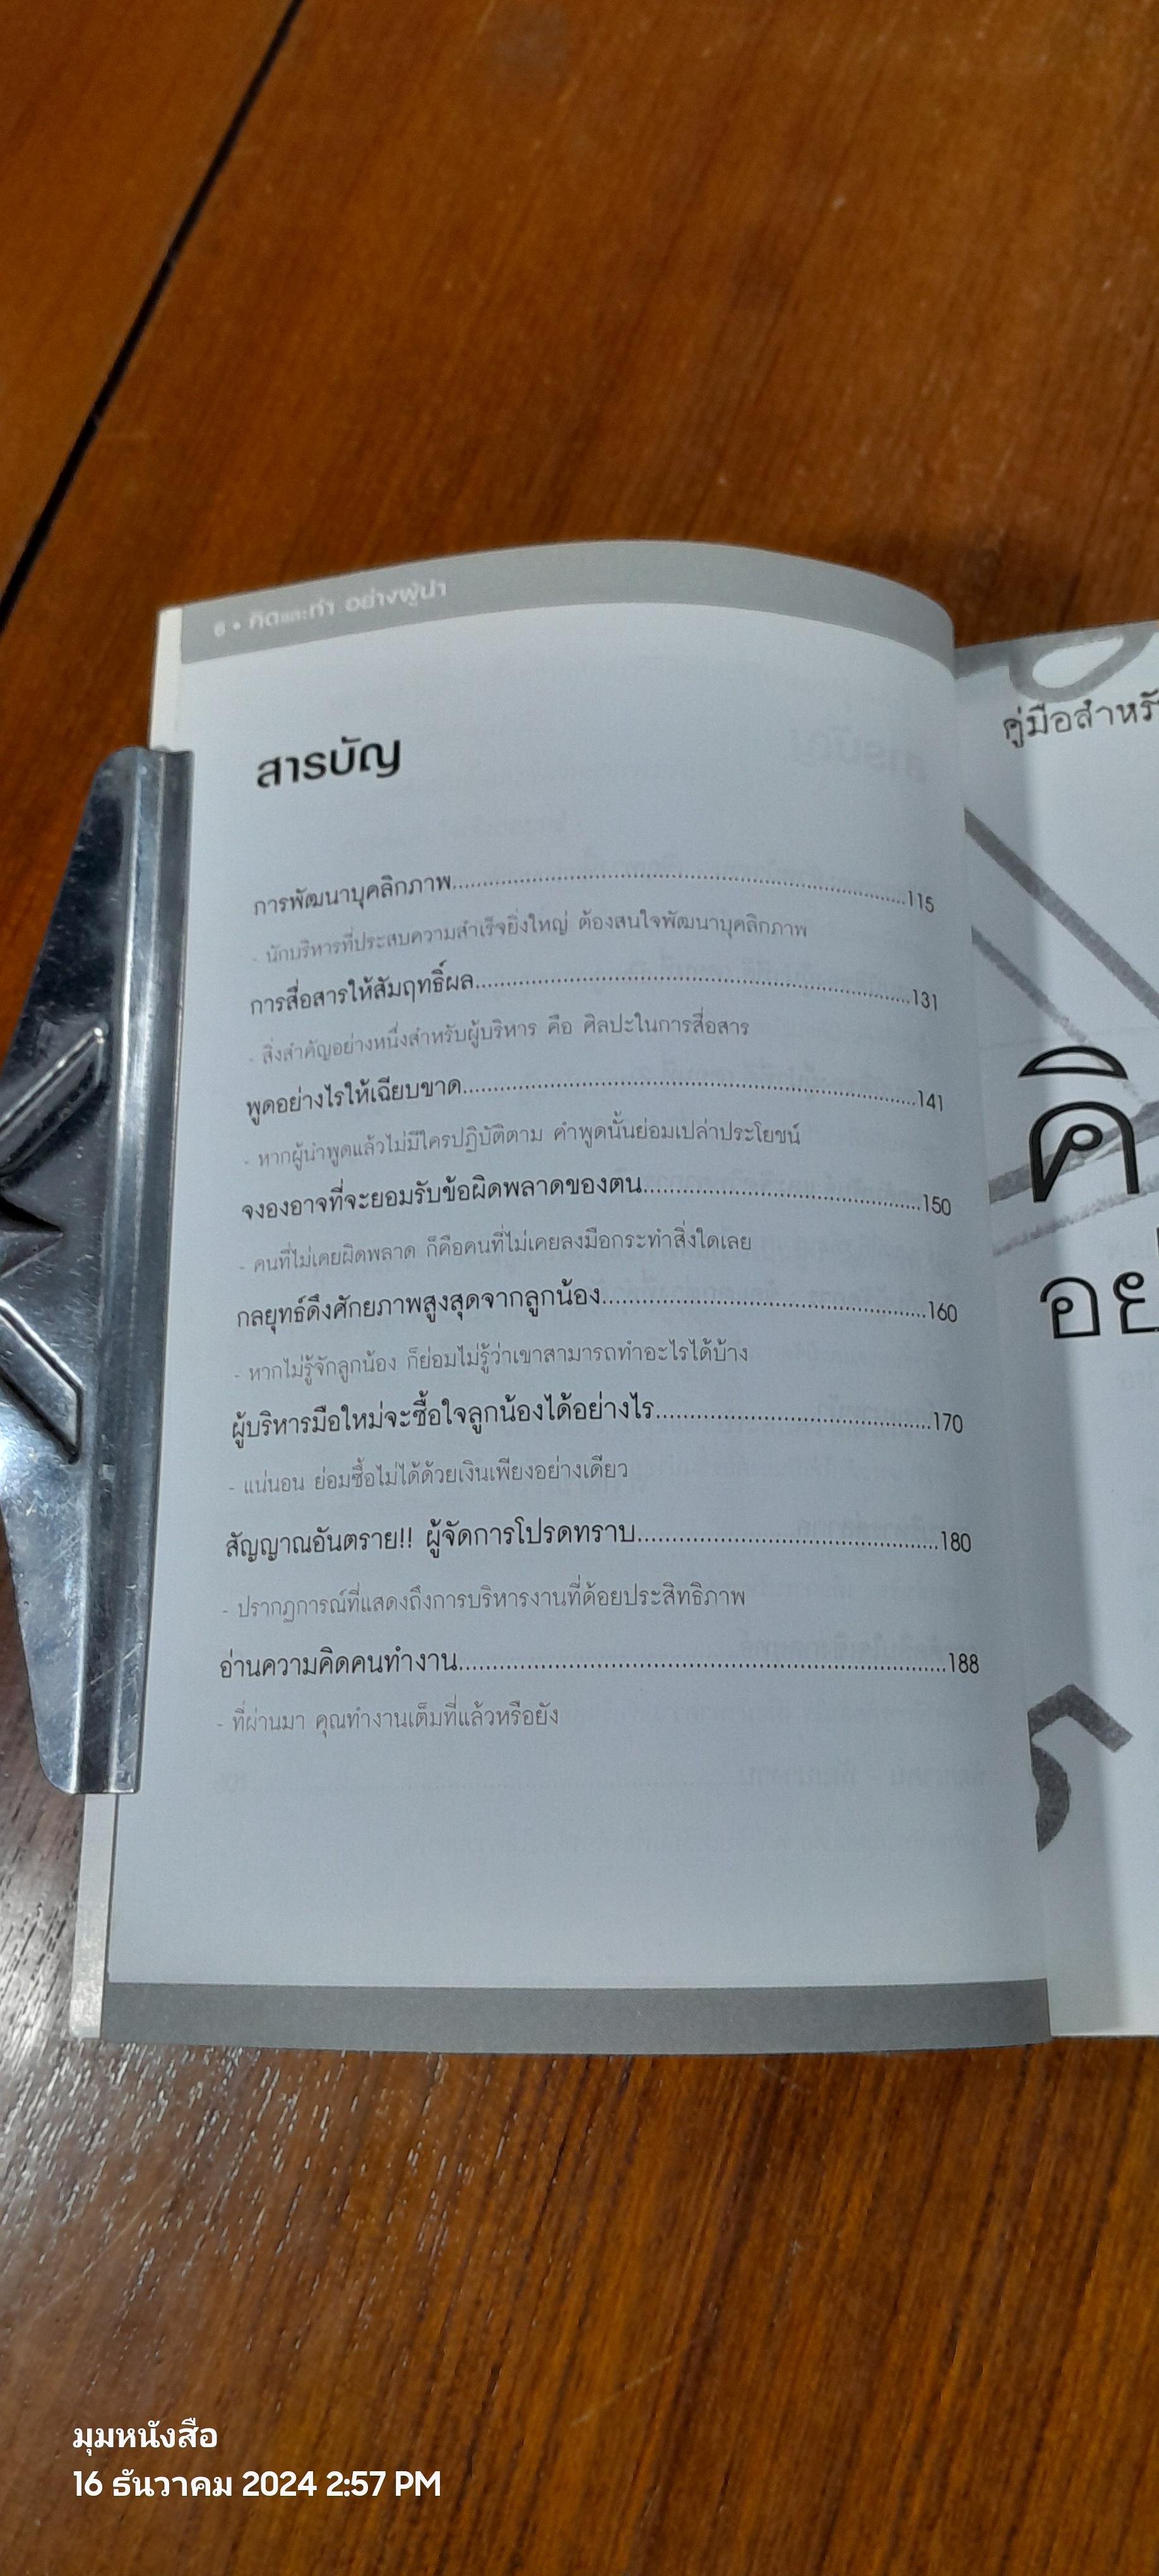 6 • คิดและทำ อย่างผู้นำ
สารบัญ
การพัฒนาบุคลิกภาพ..........115
- นักบริหารที่ประสบความสำเร็จยิ่งใหญ่ ต้องสนใจพัฒนาบุคลิกภาพ
การสื่อสารให้สัมฤทธิ์ผล..........131
- สิ่งสำคัญอย่างหนึ่งสำหรับผู้บริหาร คือ ศิลปะในการสื่อสาร
พูดอย่างไรให้เฉียบขาด..........141
- หากผู้นำพูดแล้วไม่มีใครปฏิบัติตาม คำพูดนั้นย่อมเปล่าประโยชน์
จงองอาจที่จะยอมรับข้อผิดพลาดของตน..........150
- คนที่ไม่เคยผิดพลาด ก็คือคนที่ไม่เคยลงมือกระทำสิ่งใดเลย
กลยุทธ์ดึงศักยภาพสูงสุดจากลูกน้อง..........160
- หากไม่รู้จักลูกน้อง ก็ย่อมไม่รู้ว่าเขาสามารถทำอะไรได้บ้าง
ผู้บริหารมือใหม่จะซื้อใจลูกน้องได้อย่างไร..........170
- แน่นอน ย่อมซื้อไม่ได้ด้วยเงินเพียงอย่างเดียว
สัญญาณอันตราย!! ผู้จัดการโปรดทราบ..........180
- ปรากฏการณ์ที่แสดงถึงการบริหารงานที่ด้อยประสิทธิภาพ
อ่านความคิดคนทำงาน..........188
- ที่ผ่านมา คุณทำงานเต็มที่แล้วหรือยัง
คู่มือสำหรั
คิ
อย
มุมหนังสือ
16 ธันวาคม 2024 2:57 PM